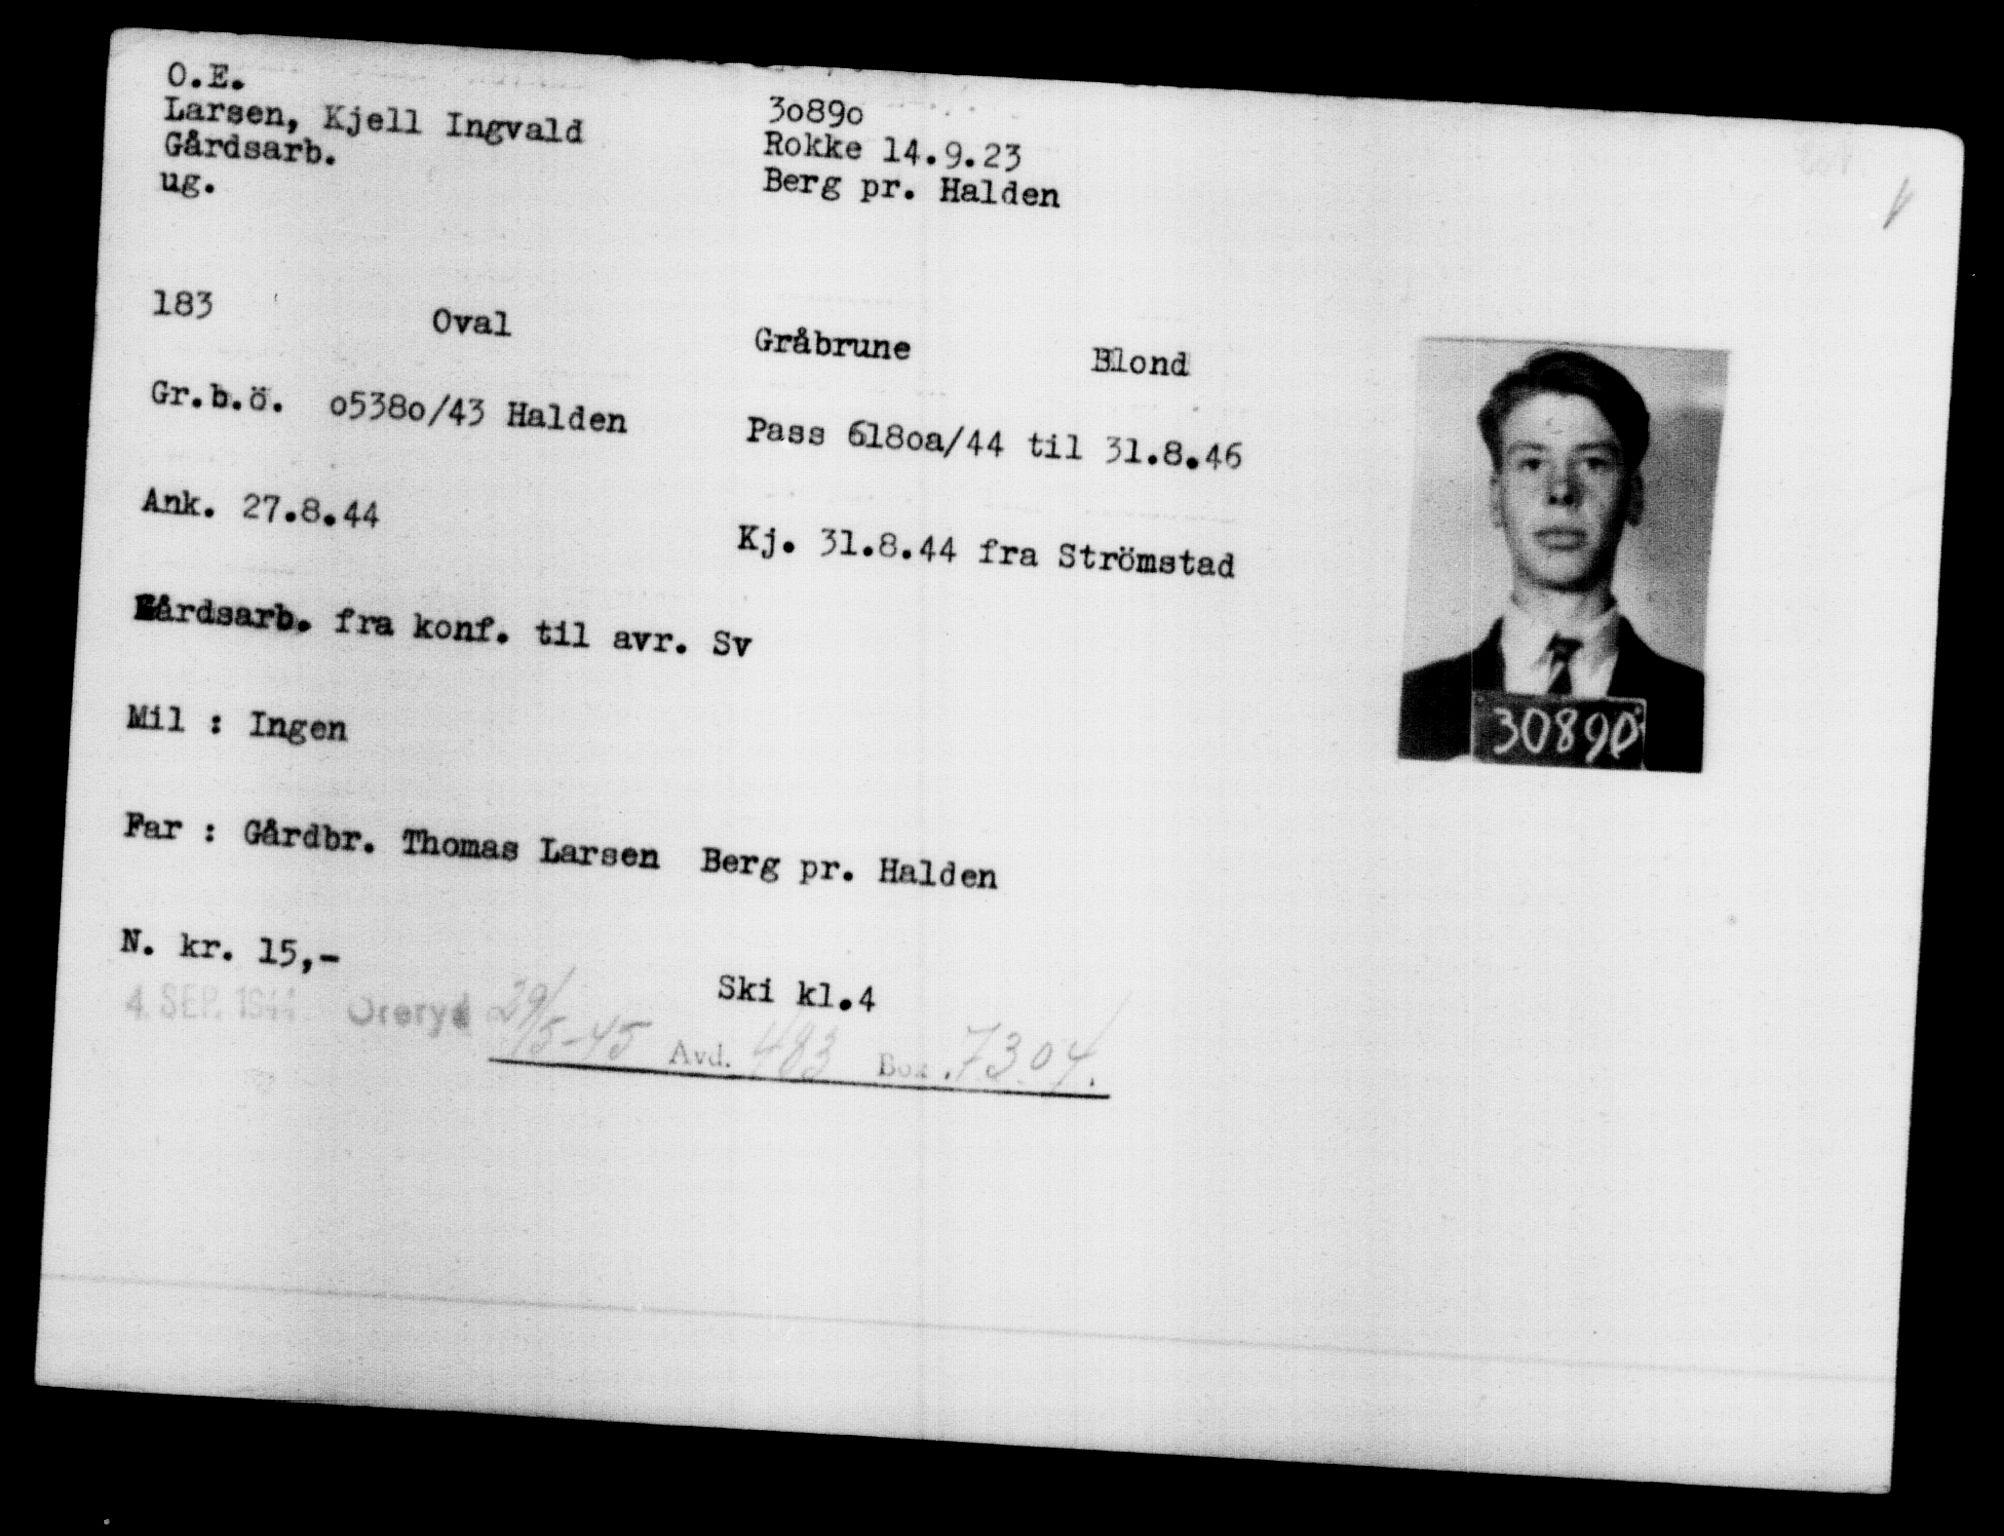 O.E.
Larsen, Kjell Ingvald 3o89o
Gårdsarb. Rokke 14.9.23
ug. Berg pr. Halden
183 Oval Gråbrune Blond
Gr.b.ö. o538o/43 Halden Pass 618oa/44 til 31.8.46
Ank. 27.8.44 Kj. 31.8.44 fra Strömstad
Gårdsarb. fra konf. til avr. Sv
Mil : Ingen
Far : Gårdbr. Thomas Larsen Berg pr. Halden
N. kr. 15,- Ski kl.4
4. SEP. 1944 Öreryd 29/5-45 Avd. 483 Box 7304.
30890